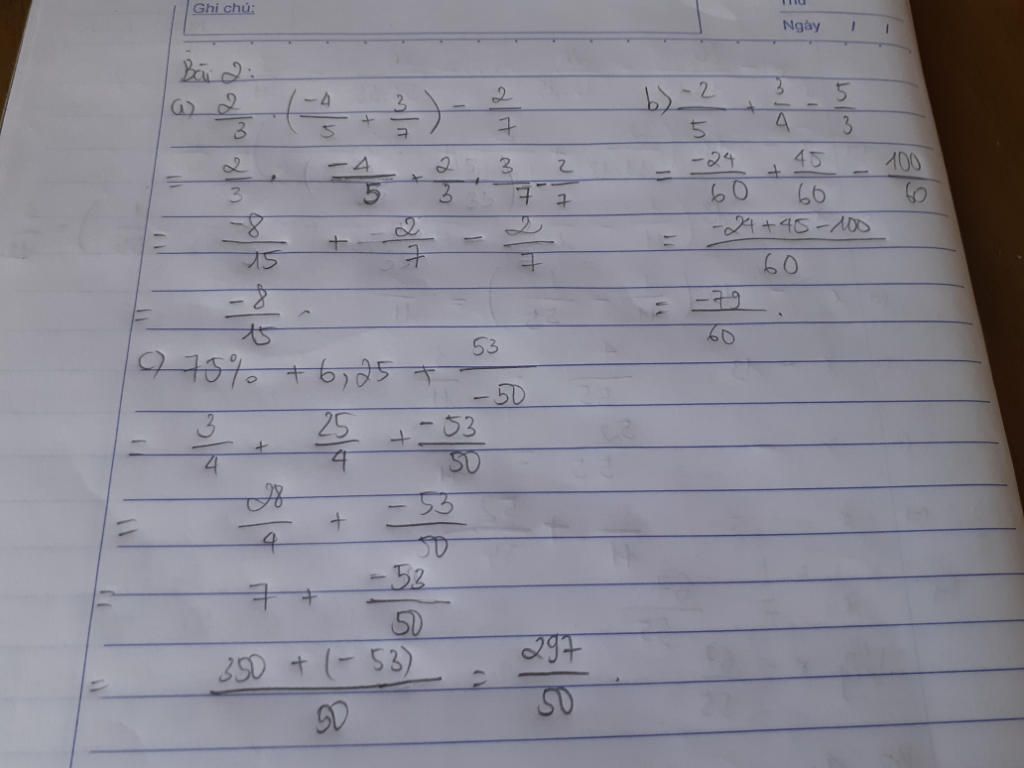 Ghi chú:
Thứ
Ngày / /
Bài 2:
a) 2/3 · (-4/5 + 3/7) - 2/7
= 2/3 · -4/5 + 2/3 · 3/7 - 2/7
= -8/15 + 2/7 - 2/7
= -8/15 .
b) -2/5 + 3/4 - 5/3
= -24/60 + 45/60 - 100/60
= (-24 + 45 - 100)/60
= -79/60 .
c) 75% + 6,25 + 53/-50
= 3/4 + 25/4 + -53/50
= 28/4 + -53/50
= 7 + -53/50
= (350 + (-53))/50 = 297/50 .